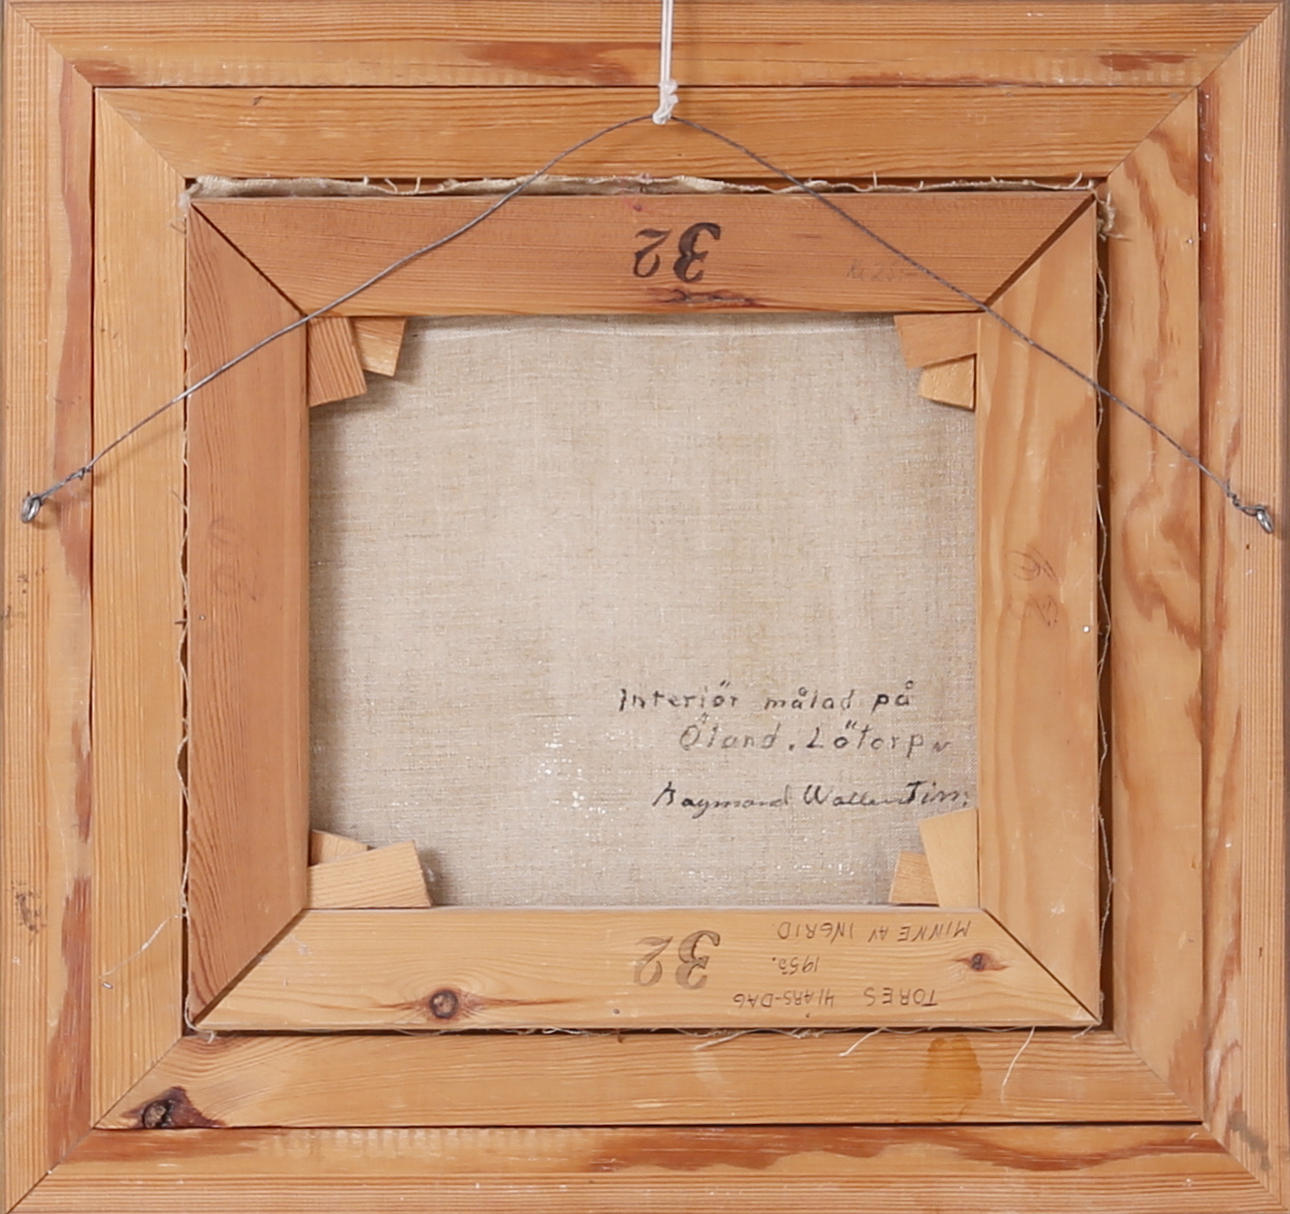 32
Interiör målad på
Öland. Lötorp
Raymond Wallentin
32
TORES 41ARS-DAG
1953.
MINNE AV INGRID